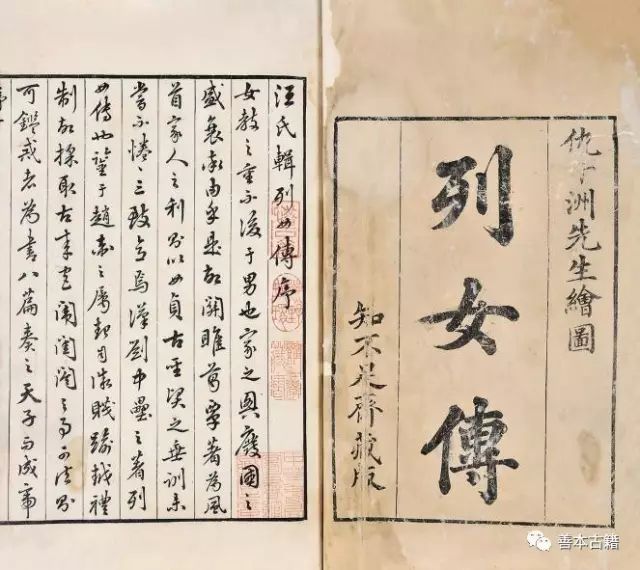 仇十洲先生繪圖
列女傳
知不足齋藏版
汪氏輯列女傳序
女教之重不後于男也家之興廢國之
盛衰率由乎是故關雎葛覃著為風
首家人之利則以女貞古聖賢之垂訓未
嘗不惓之三致意焉漢劉中壘之著列
女傳也于趙之屬起自微賤踰越禮
制故採取古來宮闈閨之可法則
可鑑戒者為書八篇奏之天子而成帝
善本古籍